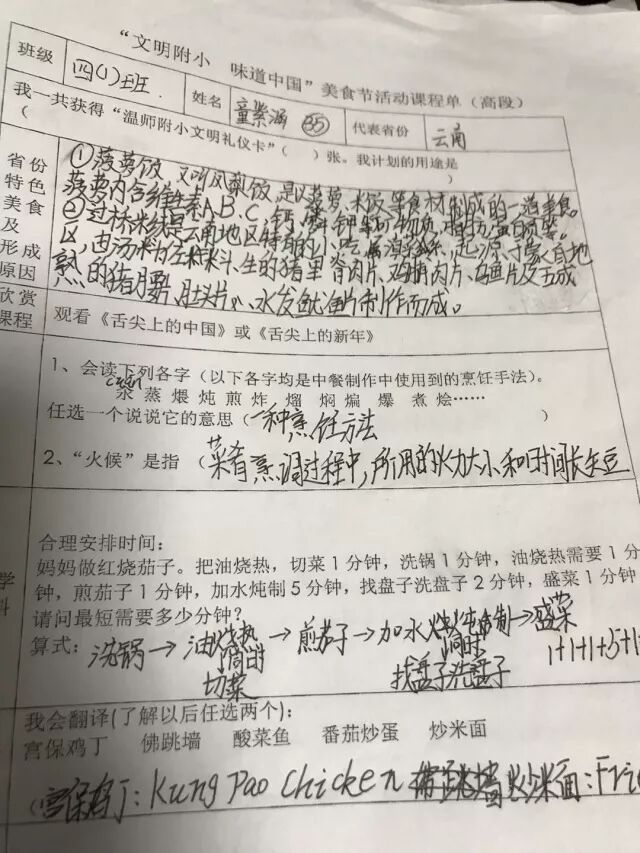 “文明附小 味道中国”美食节活动课程单（高段）
班级 四(1)班 姓名 童紫涵 35 代表省份 云南
我一共获得“温师附小文明礼仪卡”（ ）张。我计划的用途是
（ ）
省份特色美食及形成原因
①菠萝饭 又叫凤梨饭，是以菠萝、米饭等食材制成的一道美食。
菠萝内含维生素A、B、C、钙、磷、钾等矿物质、脂肪、蛋白质等。
②过桥米线是云南地区特有的小吃，属滇菜系，起源于蒙自地
区，由汤料、佐料、生的猪里脊肉片、鸡脯肉片、乌鱼片及五成
熟的猪腰片、肚头片、水发鱿鱼片制作而成。
欣赏课程 观看《舌尖上的中国》或《舌尖上的新年》
1、会读下列各字（以下各字均是中餐制作中使用到的烹饪手法）。
汆 蒸 煨 炖 煎 炸 熘 焖 煸 爆 煮 烩……
任选一个说说它的意思（一种烹饪方法 ）
2、“火候”是指（菜肴烹调过程中，所用的火力大小和时间长短
学科
合理安排时间：
妈妈做红烧茄子。把油烧热，切菜1分钟，洗锅1分钟，油烧热需要1分
钟，煎茄子1分钟，加水炖制5分钟，找盘子洗盘子2分钟，盛菜1分钟
请问最短需要多少分钟？
算式：洗锅→油烧热→煎茄子→加水炖制→盛菜
同时 同时 1+1+1+5+1
切菜 找盘子洗盘子
我会翻译(了解以后任选两个)：
宫保鸡丁 佛跳墙 酸菜鱼 番茄炒蛋 炒米面
(宫保鸡丁：Kung Pao Chicken 炒米面：Fri